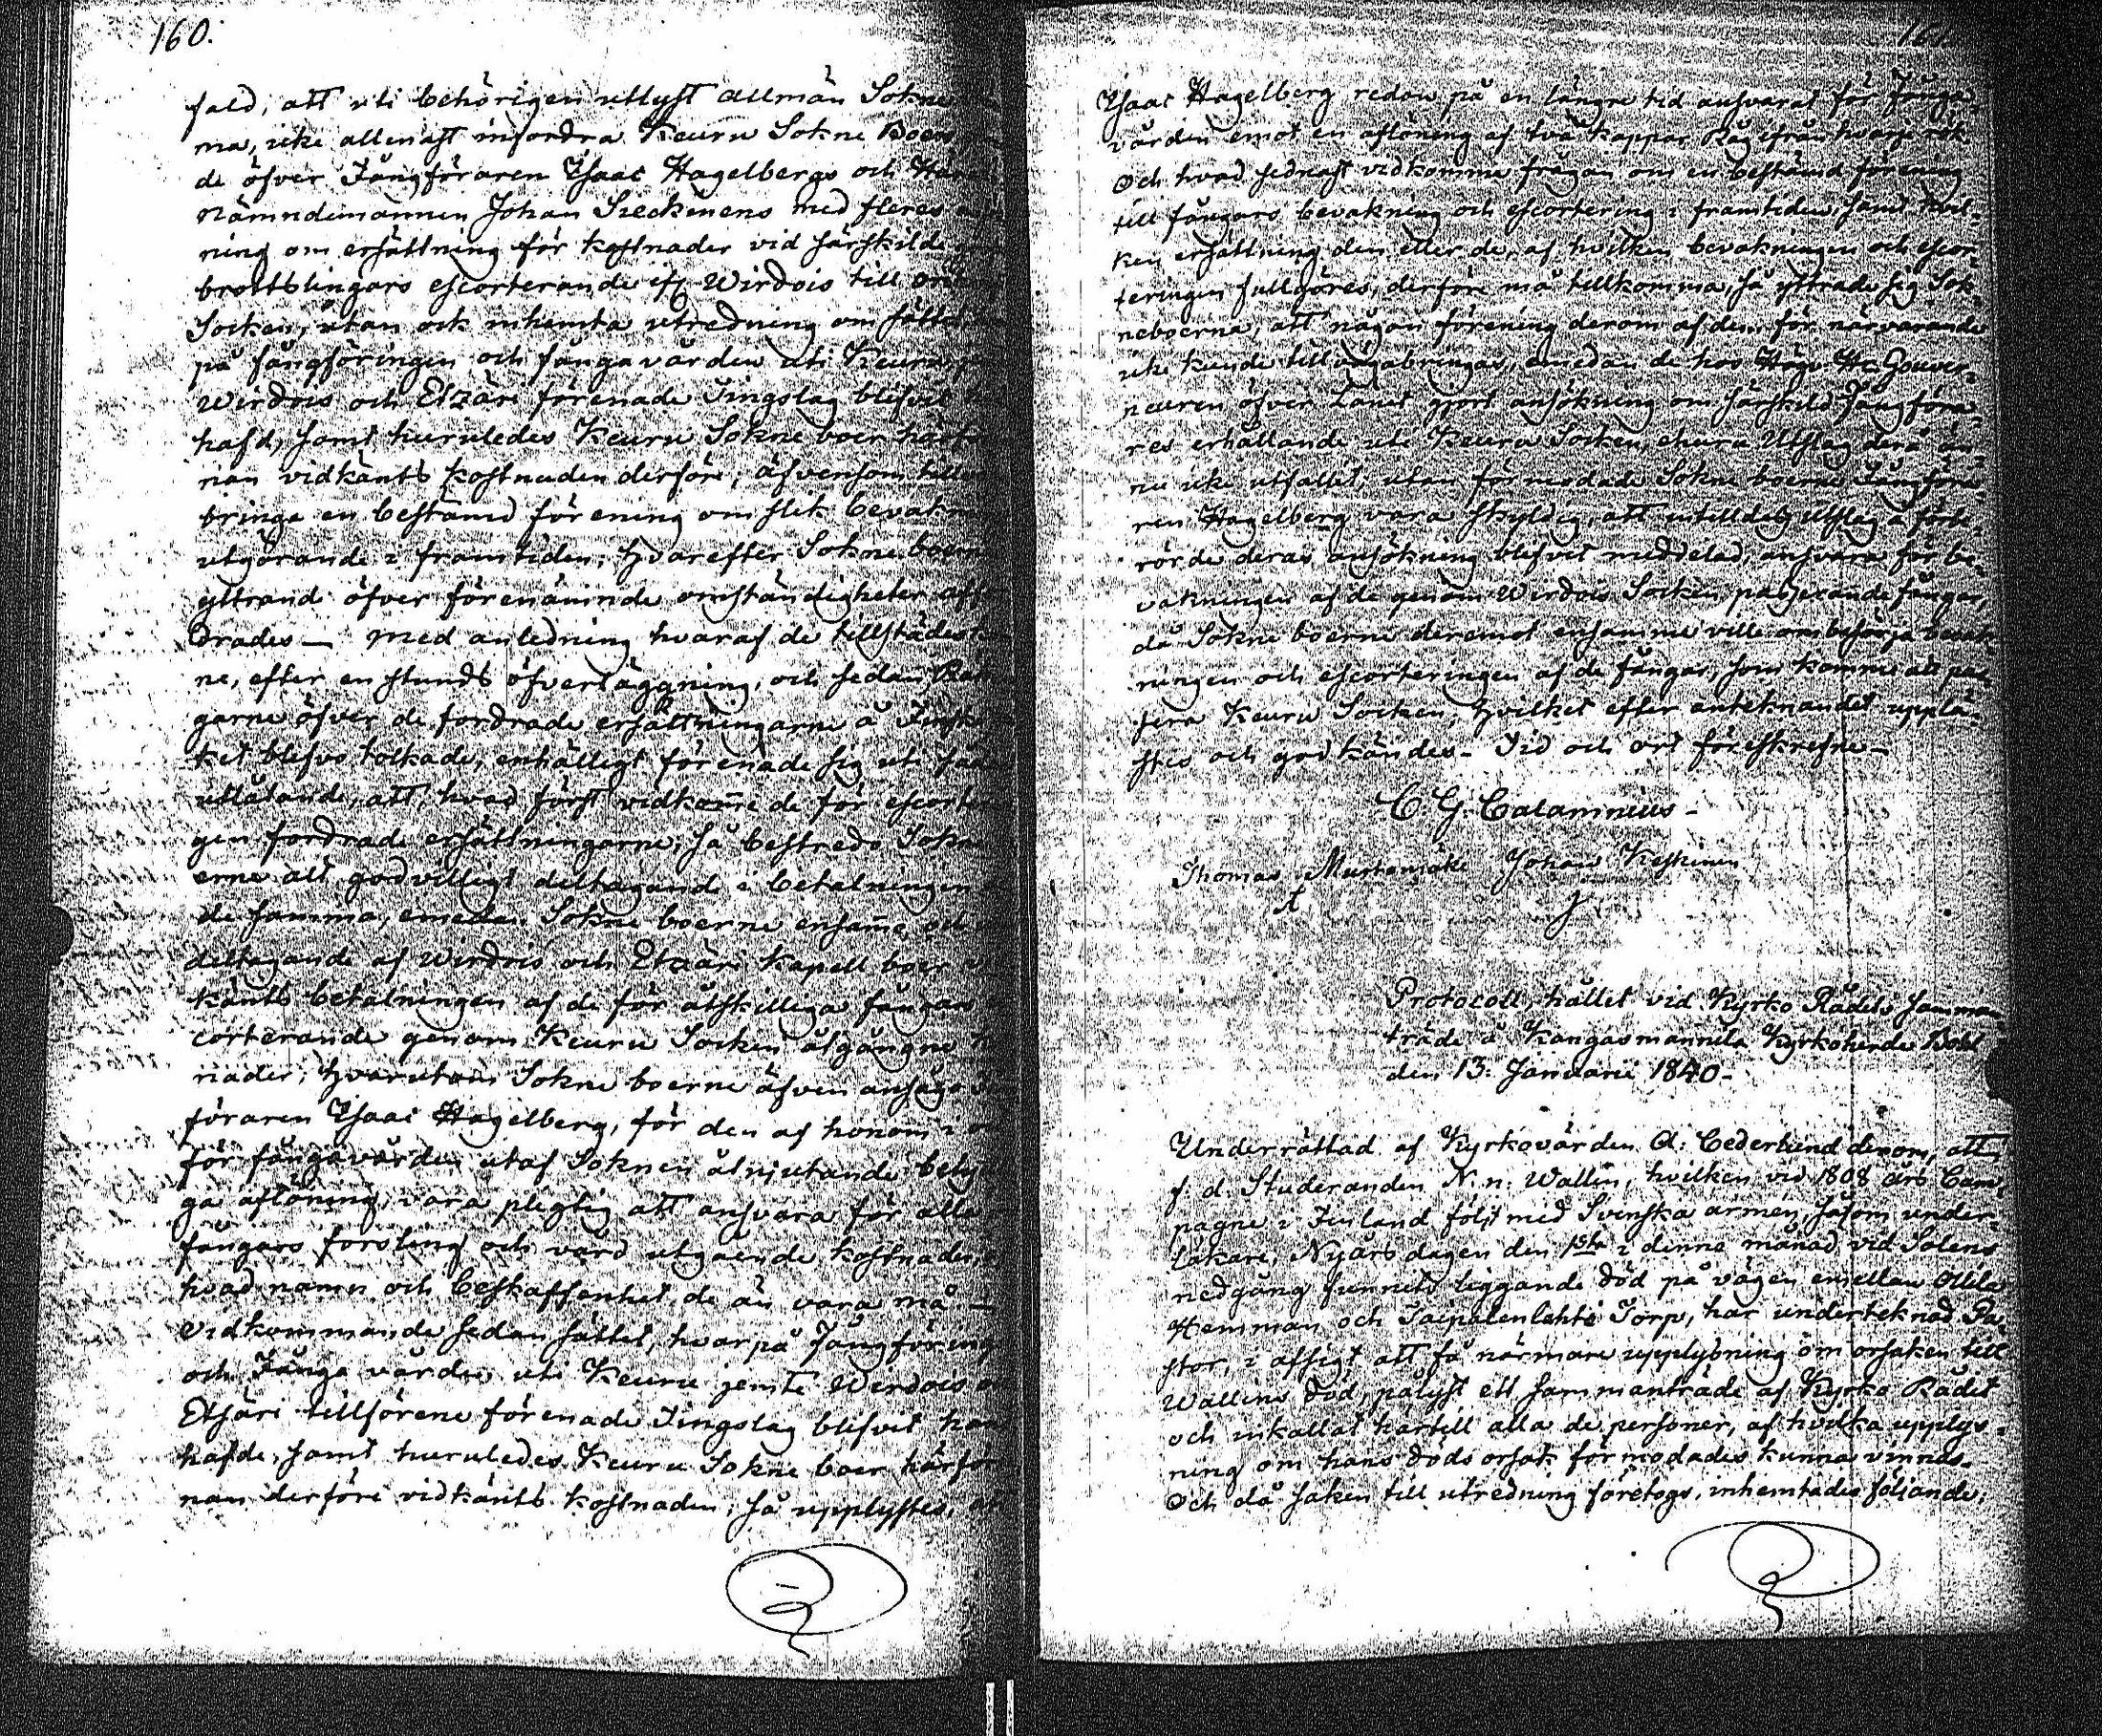 160.
fald, att uti behörigen utlyst allmän Sokne
ma, icke allenast infordra Keuru Sokne Boers
de öfver Fångföraren Isaac Hagelbergs och Hä
Nämndemannen Johan Sieckinens med fleres
ning om ersättning för kostnader vid särskilde
brottslingars escorterande ifr. Wirdois till
Socken, utan ock inhemta utredning om sättet
på fångföringen och fångavården uti Keuru,
Wirdois och Etzäri förenade Tingslag blifvit
hafd, samt huruledes Keuru Sokne boer härti
nian vidkänts kostnaden derföre; äfvensom tillv
bringa en bestämd förening om slik bevakn
utgörande i framtiden; hvarefter Sokne boern
yttrand öfver förenämnde omständigheter aff
drades — Med anledning hvaraf de tillstädes
ne, efter en stunds öfverläggning, och sedan Räk
garne öfver de fordrade ersättningarne å Finska
ket blifvo tolkade, enhälligt förenade sig uti
utlåtande, att, hvad först vidkom̄e de för escorte
gen fordrade ersättningarne, så bestredo Sokn
erne allt godvilligt deltagande i betalningen
de samma, emedan Sokne boerne ensam̄e och
deltagande af Wirdois och Etzäri Kapell boer
känts betalningen af de för åtskilliga fångars
corterande genom Keuru Socken åtgångne
nader; hvarutom Sokne boerne äfven ansågo
föraren Isaac Hagelberg, för den af honom
för fångavården utaf Soknen åtnjutande bety
ga aflöning, vara pligtig att ansvara för alla
fångars forsling och vård utgående kostnader,
hvad namn och beskaffenhet de än vara må —
Vidkommande sedan sättet, hvarpå Fångföring
och Fånga vården uti Keuru jemte Wirdois
Etsäri tillförene förenade Tingslag blifvit han
hafde, samt huruledes Keuru Sokne boer härför
nan derföre vidkänts kostnaden; så upplystes, at
161.
Isaac Hagelberg redan på en längre tid ansvarat för Fånga
vården emot en aflöning af två kappar Råg ifrån hvarje rök
Och hvad sednast vidkomme frågan om en bestämd förening
till fångars bevakning och escortering i framtiden, samt hvil-
ken ersättning den eller de, af hvilken bevakningen och escor-
teringen fullgöres, derföre må tillkomma, så yttrade sig Sok-
neboerna, att någon förening derom af dem för närvarande
icke kunde tillvägabringas, emedan de hos Högv. Hr. Gouver-
neuren öfver Länet gjort ansökning om särskild Fångföra-
res erhållande uti Keuru Socken, ehuru Utslag derå än-
nu icke utfallit; utan förmodade Sokne boerne Fångföra-
ren Hagelberg vara skyldig, att intilldess Utslag å förbe-
rörde deras ansökning blifvit meddelad, ansvara för be-
vakningen af de genom Wirdois Socken passerande fångar,
då Sokne boerne deremot ensamme ville ombesörja bevak
ningen och escorteringen af de fångar, som komme att pas
sera Keuru Socken; hvilket efter anteknandet upplä-
stes och godkändes - Tid och ort föreskrefne —
C. G. Calamnius -
Thomas Mustamäki Johan Keskinen
Protocoll, hållet vid Kyrko Rådets samman-
träde å Kangasmannila Kyrkoherde Bohl
den 13. Januarii 1840 -
Underrättad af Kyrkovärden A: Cederlund derom, att
f. d. Studeranden N. n. Wallin, hvilken vid 1808 års Cam-
pagne i Finland följt med Svenska armén såsom under-
läkare, Nyårs dagen den 1sta i denna månad vid Solens
nedgång funnits liggande död på vägen emellan Ollila
Hemman och Taipalenlahti Torp, har undertecknad Pa-
stor, i afsigt att få närmare upplysning om orsaken till
Wallins död, pålyst ett sammanträde af Kyrko Rådet
och inkallat hartill alla de personer, af hvilka upplys-
ning om hans döds orsak förmodades kunna vinnas.
Och då saken till utredning företogs, inhemtades följande: